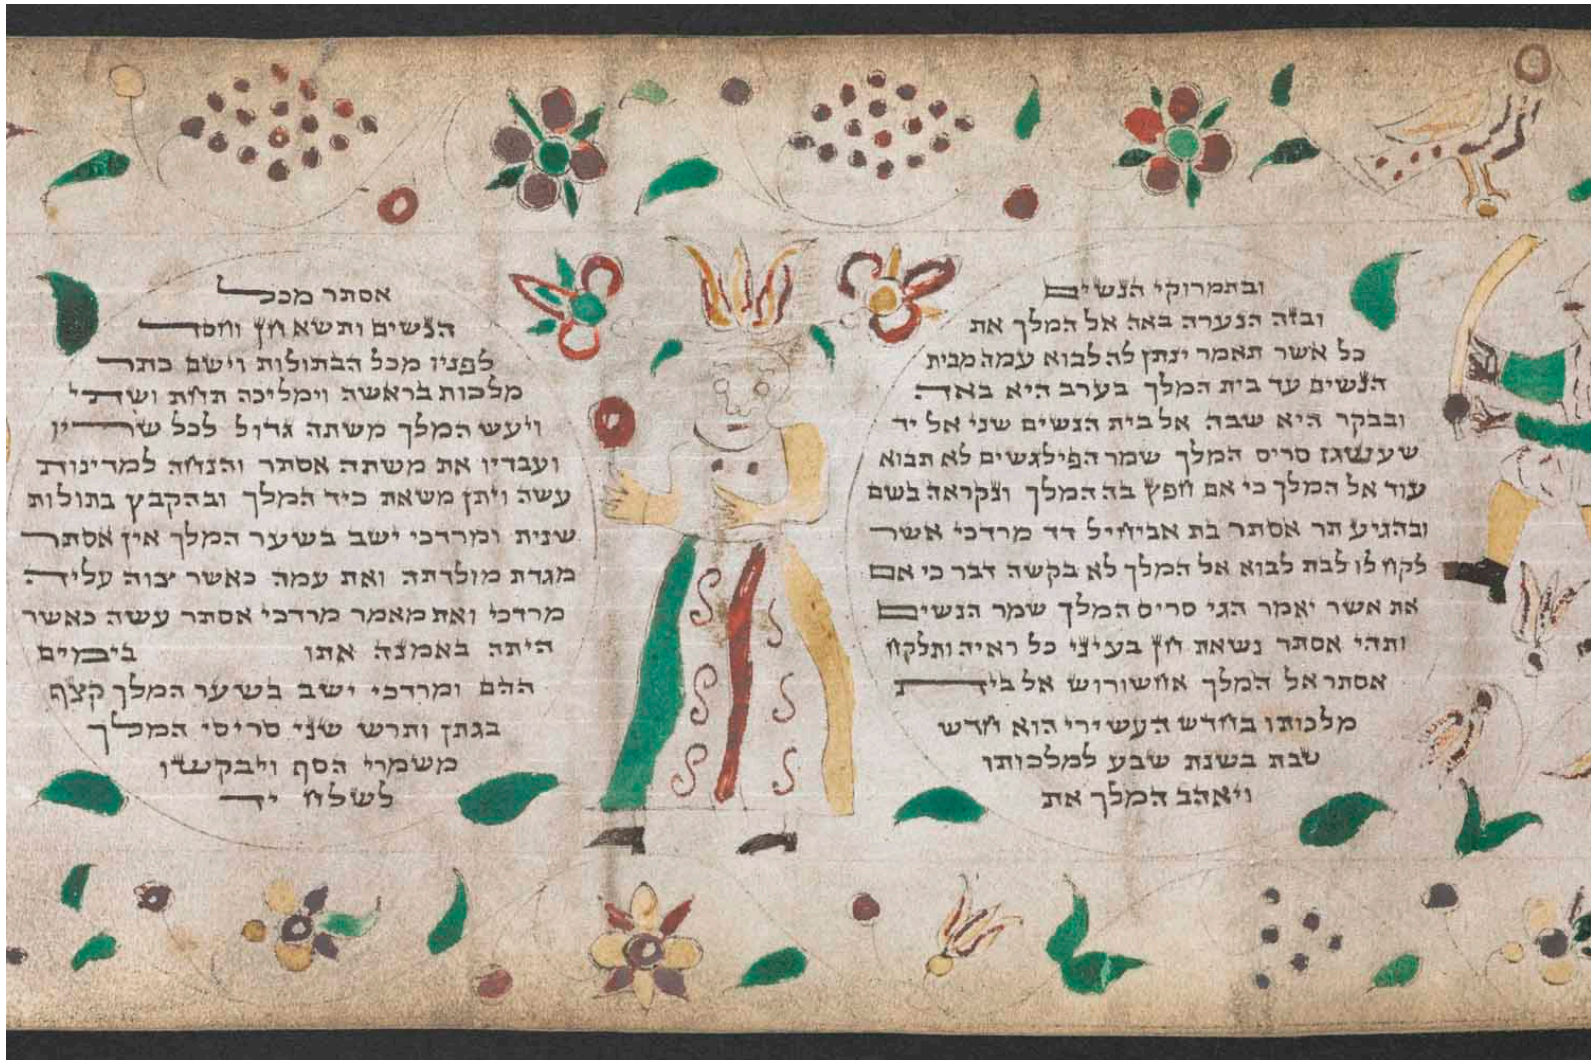 ובתמרוקי הנשים
ובזה הנערה באה אל המלך את
כל אשר תאמר ינתן לה לבוא עמה מבית
הנשים עד בית המלך בערב היא באה
ובבקר היא שבה אל בית הנשים שני אל יד
שעשגז סריס המלך שמר הפילגשים לא תבוא
עוד אל המלך כי אם חפץ בה המלך ונקראה בשם
ובהגיע תר אסתר בת אביחיל דד מרדכי אשר
לקח לו לבת לבוא אל המלך לא בקשה דבר כי אם
את אשר יאמר הגי סריס המלך שמר הנשים
ותהי אסתר נשאת חן בעיני כל ראיה ותלקח
אסתר אל המלך אחשורוש אל בית
מלכותו בחדש העשירי הוא חדש
טבת בשנת שבע למלכותו
ויאהב המלך את
אסתר מכל
הנשים ותשא חן וחסד
לפניו מכל הבתולות וישם כתר
מלכות בראשה וימליכה תחת ושתי
ויעש המלך משתה גדול לכל שריו
ועבדיו את משתה אסתר והנחה למדינות
עשה ויתן משאת כיד המלך ובהקבץ בתולות
שנית ומרדכי ישב בשער המלך אין אסתר
מגדת מולדתה ואת עמה כאשר צוה עליה
מרדכי ואת מאמר מרדכי אסתר עשה כאשר
היתה באמנה אתו בימים
ההם ומרדכי ישב בשער המלך קצף
בגתן ותרש שני סריסי המלך
משמרי הסף ויבקשו
לשלח יד